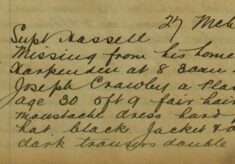 27 Mch
Supt Hassell
Missing from his home
Harpenden at 8.30am
Joseph Crawley a
age 30 5ft 9 fair hair
moustache dress hard
hat, black Jacket &
dark trousers double